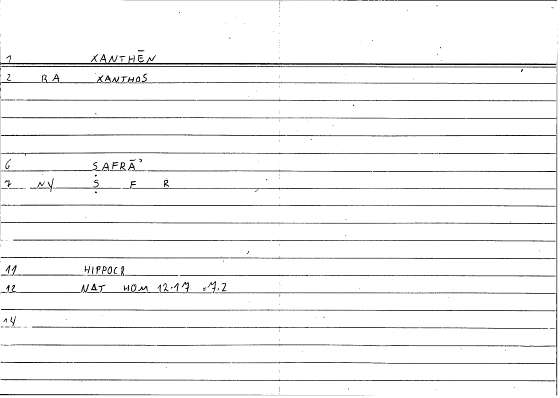 1 XANTHĒN
2 RA XANTHOS
6 SAFRĀʾ
7 NY Ṣ F R
11 HIPPOCR
12 NAT HOM 12.17 = 7.2
14